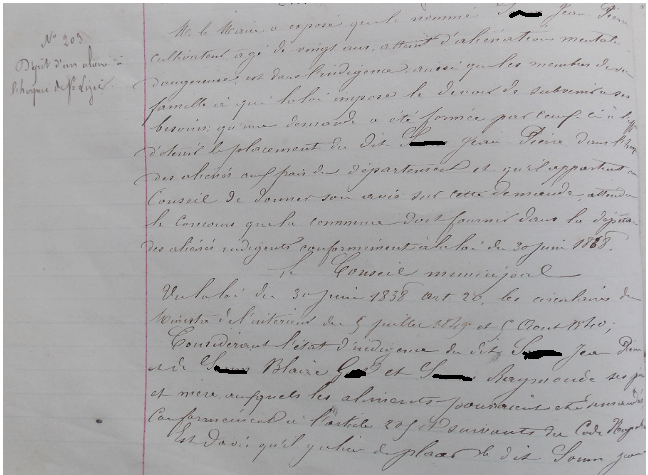 N° 203
Dépôt d'un aliéné à
l'hospice de St Lizier
M. le Maire a exposé que le nommé Jean Pierre
cultivateur âgé de vingt ans, atteint d'aliénation mentale
dangereuse, est dans l'indigence, aussi que les membres de sa
famille à qui la loi impose le devoir de subvenir à ses
besoins; qu'une demande a été formée par eux à l'effet
d'obtenir le placement du dit Jean Pierre dans
des aliénés aux frais du département et qu'il appartient au
Conseil de donner son avis sur cette demande, attendu
le concours que la commune doit fournir dans la dépense
des aliénés indigents conformément à la loi du 30 juin 1838.
Le Conseil municipal
Vu la loi du 30 juin 1838 art 28, les circulaires du
Ministre de l'intérieur du 5 juillet et 5 Août 1840;
Considérant l'état d'indigence du dit Jean Pierre
et de Blaize et Raymonde ses père
et mère auxquels les aliments pourraient être demandés
Conformément à l'article 205 et suivants du Code
Est d'avis qu'il y a lieu de placer le dit Jean